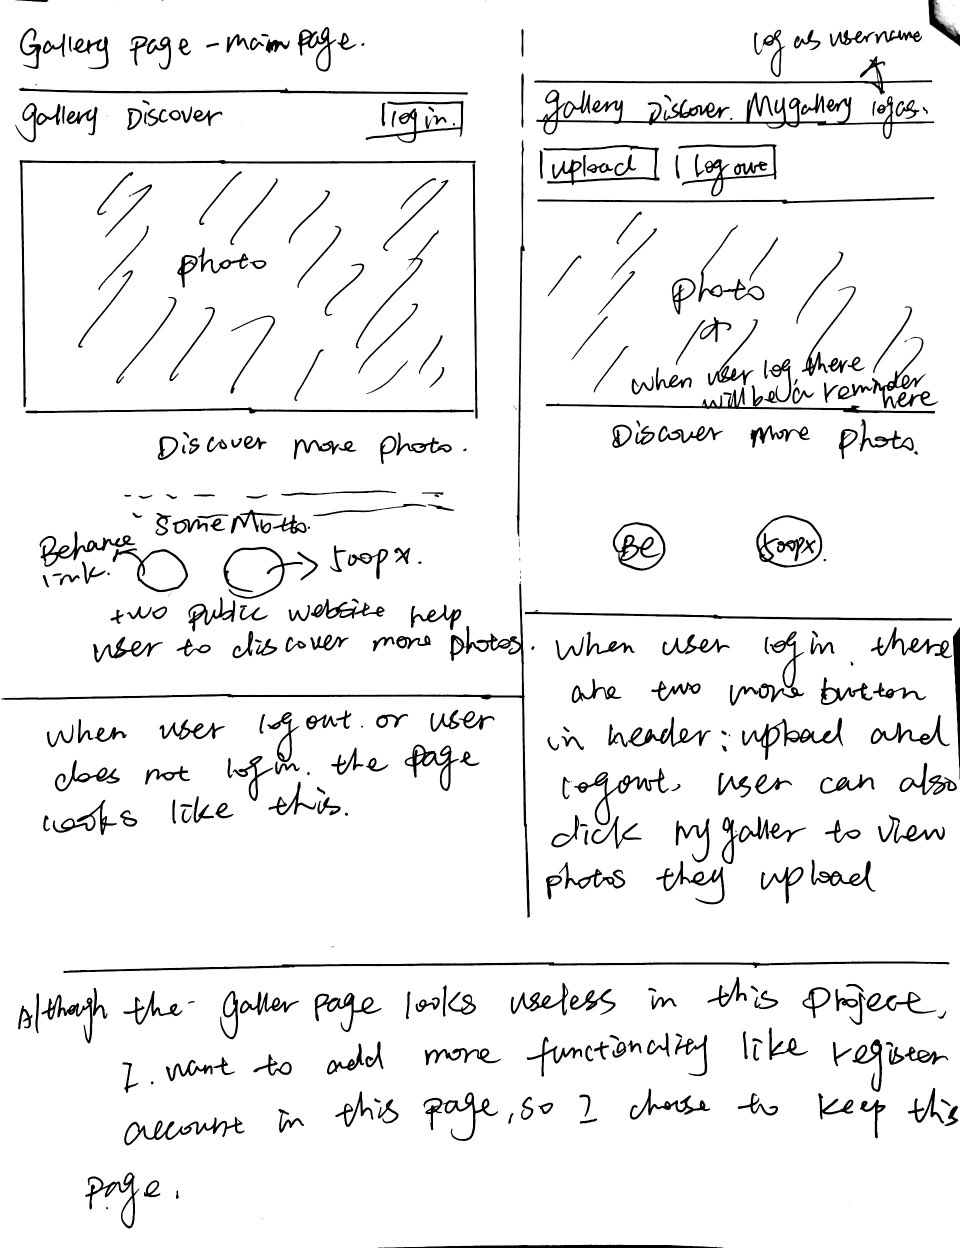 Gallery page - main page.
Gallery Discover login.
photo
Discover more photo.
Some Motto.
Behance
link.
500px.
two public website help
user to discover more photos.
when user log out or user
does not login. the page
looks like this.
log as username
Gallery Discover. Mygallery logas.
upload Log out
photo
when user log, there
will be a reminder
here
Discover more photo.
Be 500px.
When user login there
are two more button
in header: upload and
logout. user can also
click my galler to view
photos they upload
Although the galler page looks useless in this project,
I want to add more functionality like register
account in this page, so I choose to keep this
page.